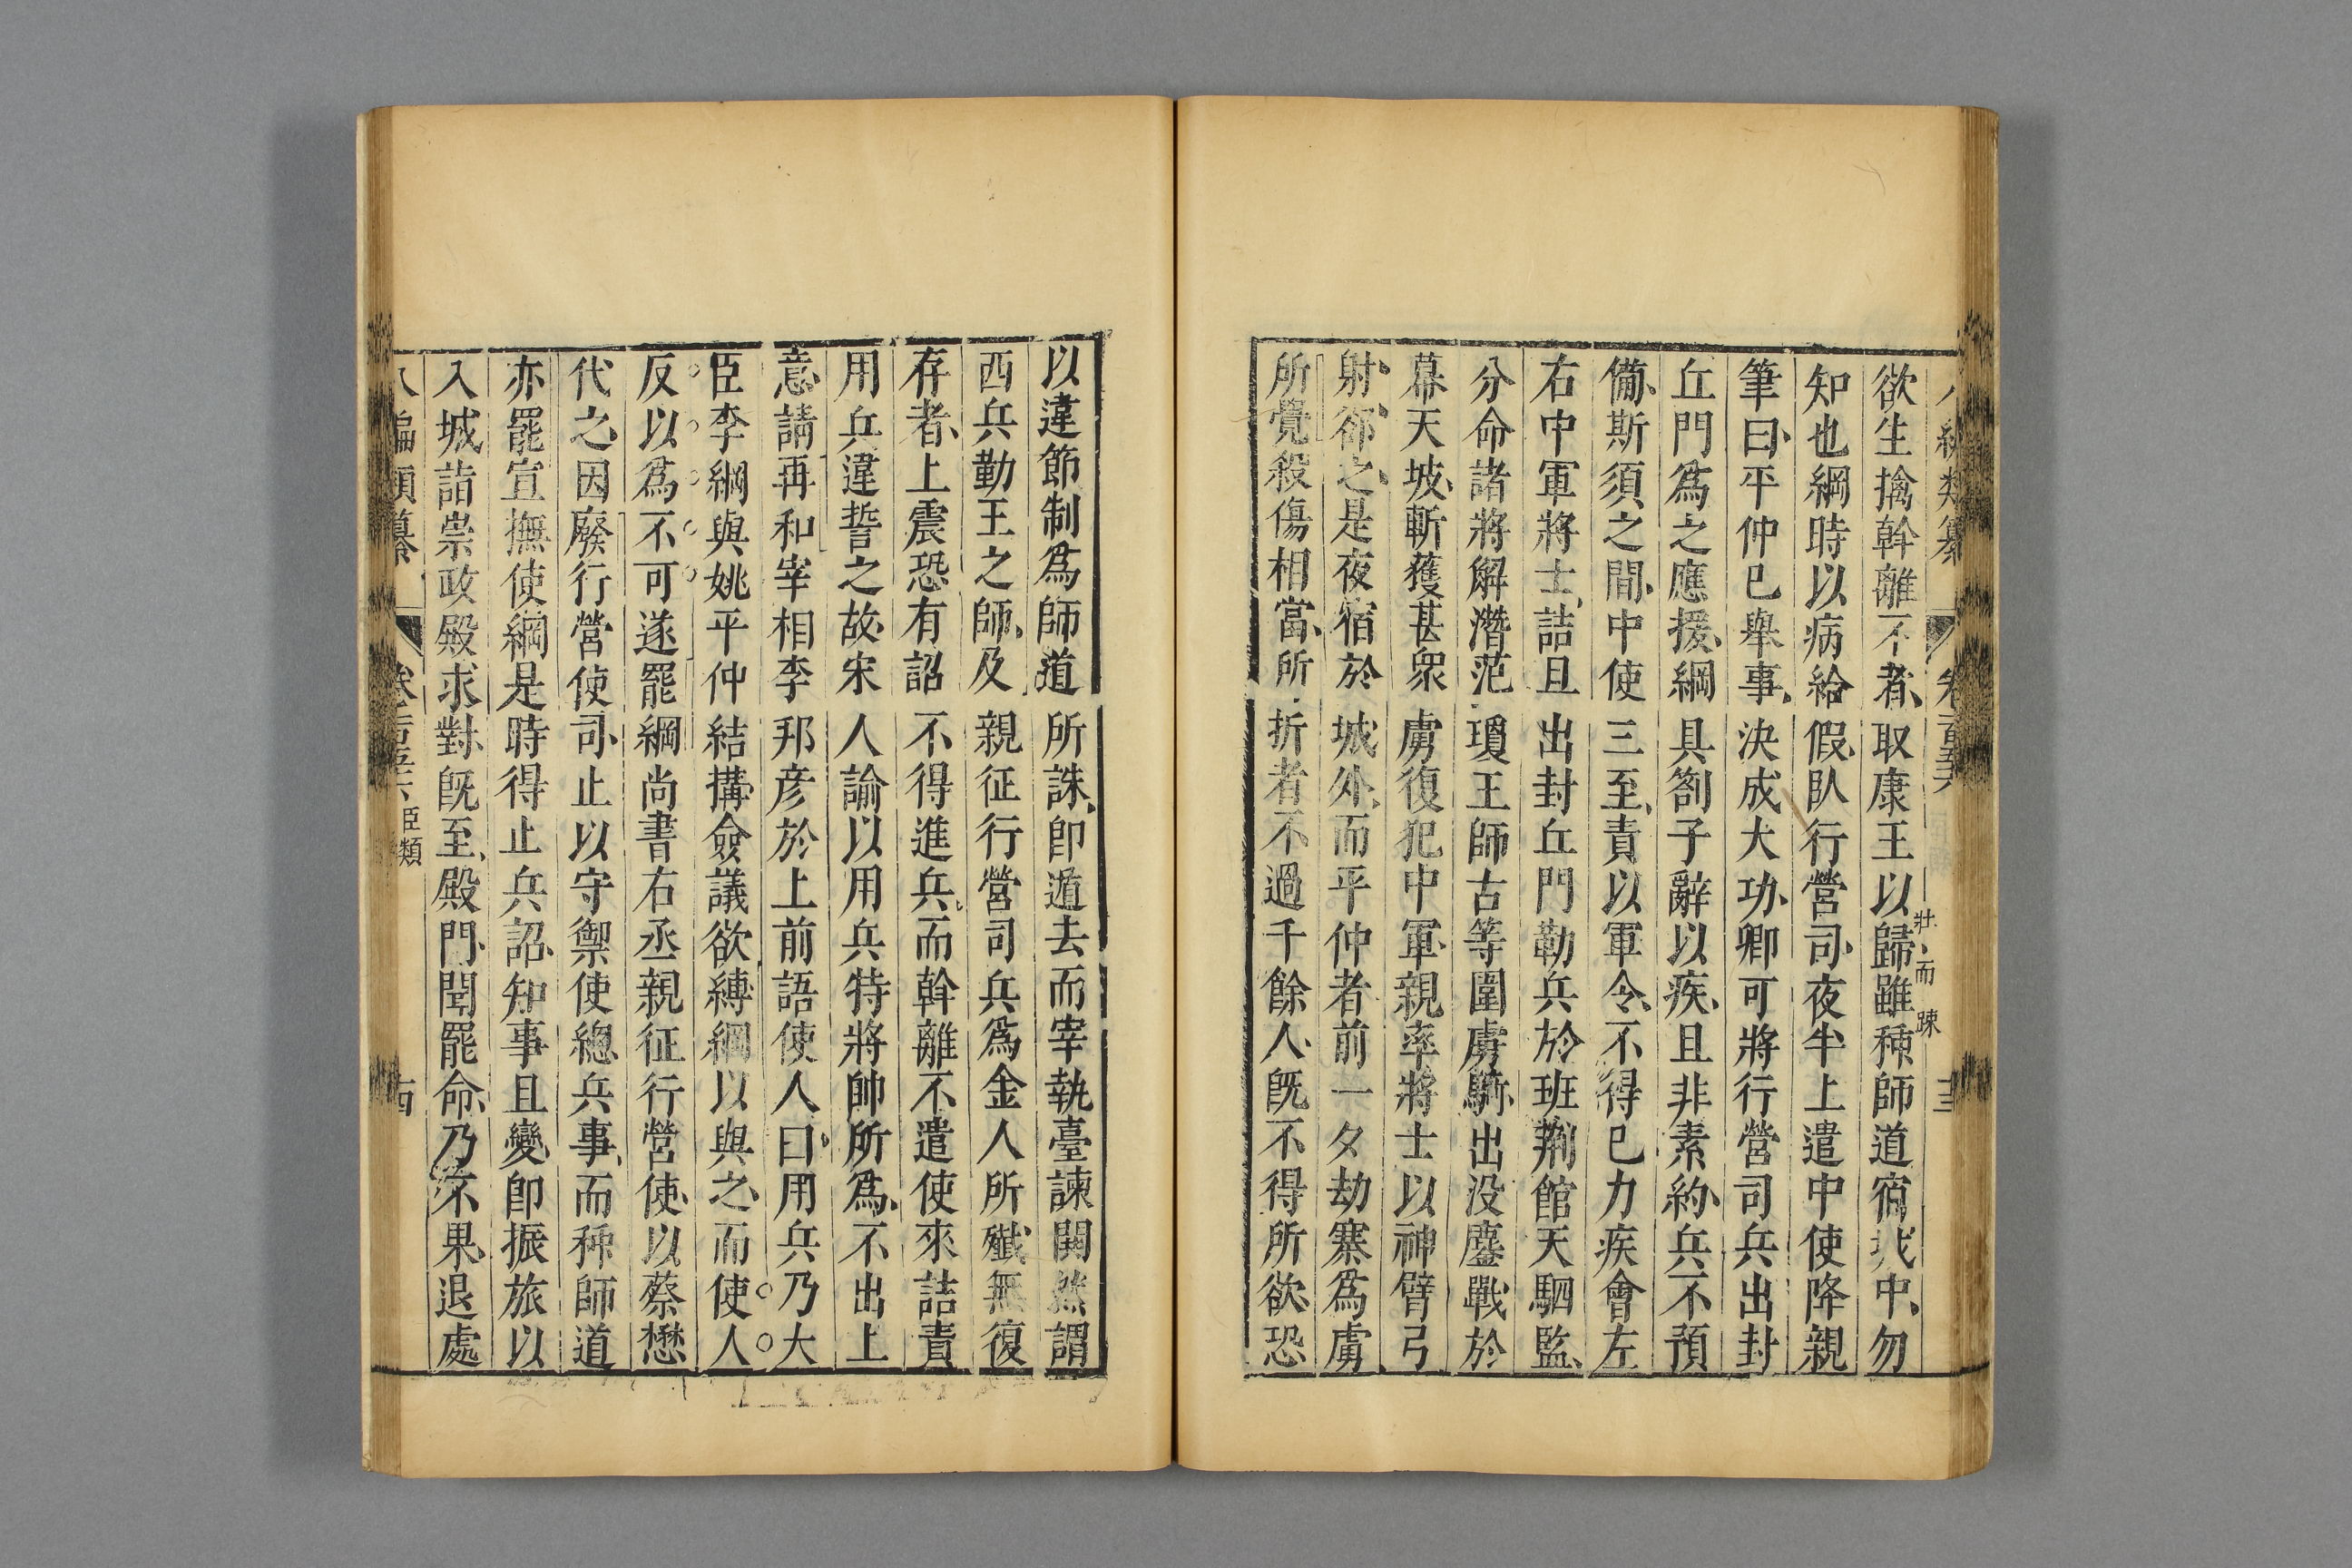 欲生擒斡離不者取康王以歸雖种師道宿城中勿
知也綱時以病給假臥行營司夜半上遣中使降親
筆曰平仲已舉事決成大功卿可將行營司兵出封
丘門爲之應援綱具劄子辭以疾且非素約兵不預
備斯須之間中使三至責以軍令不得已力疾會左
右中軍將士詰旦出封丘門勒兵於班荊館天駟監
分命諸將解潛范瓊王師古等圍虜騎出没鏖戰於
幕天坡斬獲甚衆虜復犯中軍親率將士以神臂弓
射郤之是夜宿於城外而平仲者前一夕劫寨爲虜
所覺殺傷相當所折者不過千餘人旣不得所欲恐
以違節制爲師道所誅卽遁去而宰執臺諫閧然謂
西兵勤王之師及親征行營司兵爲金人所殲無復
存者上震恐有詔不得進兵而斡離不遣使來詰責
用兵違誓之故宋人諭以用兵特將帥所爲不出上
意請再和宰相李邦彦於上前語使人曰用兵乃大
臣李綱與姚平仲結搆僉議欲縛綱以與之而使人
反以爲不可遂罷綱尚書右丞親征行營使以蔡懋
代之因廢行營使司止以守禦使總兵事而种師道
亦罷宣撫使綱是時得止兵詔知事且變卽振旅以
入城詣崇政殿求對旣至殿門聞罷命乃不果退處